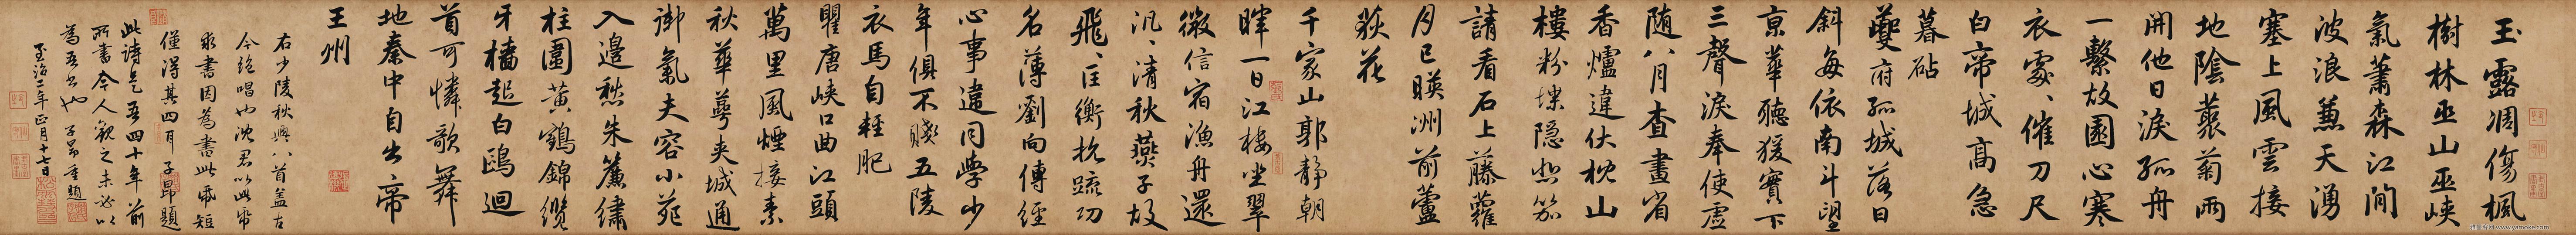 玉露凋傷楓
樹林巫山巫峽
氣蕭森江間
波浪蒹天湧
塞上風雲接
地陰叢菊兩
開他日淚孤舟
一繫故園心寒
衣處〻催刀尺
白帝城高急
暮砧
夔府孤城落日
斜每依南斗望
京華聽猨實下
三聲淚奉使虛
随八月查畫省
香爐違伏枕山
樓粉堞隐悲笳
請看石上藤蘿
月已暎洲前蘆
荻花
千家山郭靜朝
暉一日江樓坐翠
微信宿漁舟還
汎〻清秋燕子故
飛〻匡衡抗疏功
名薄劉向傳經
心事違同學少
年俱不賤五陵
衣馬自輕肥
瞿唐峽口曲江頭
萬里風煙接素
秋華萼夾城通
御氣夫容小苑
入邊愁朱簾繡
柱圍黄鶴錦纜
牙檣起白鷗迴
首可憐歌舞
地秦中自古帝
王州
右少陵秋興八首蓋古
今絶唱也沈君以此帋
求書因為書此帋短
僅得其四耳 子昂題
此詩是吾四十年前
所書今人觀之未必以
為吾書也 子昂重題
至治二年正月十七日